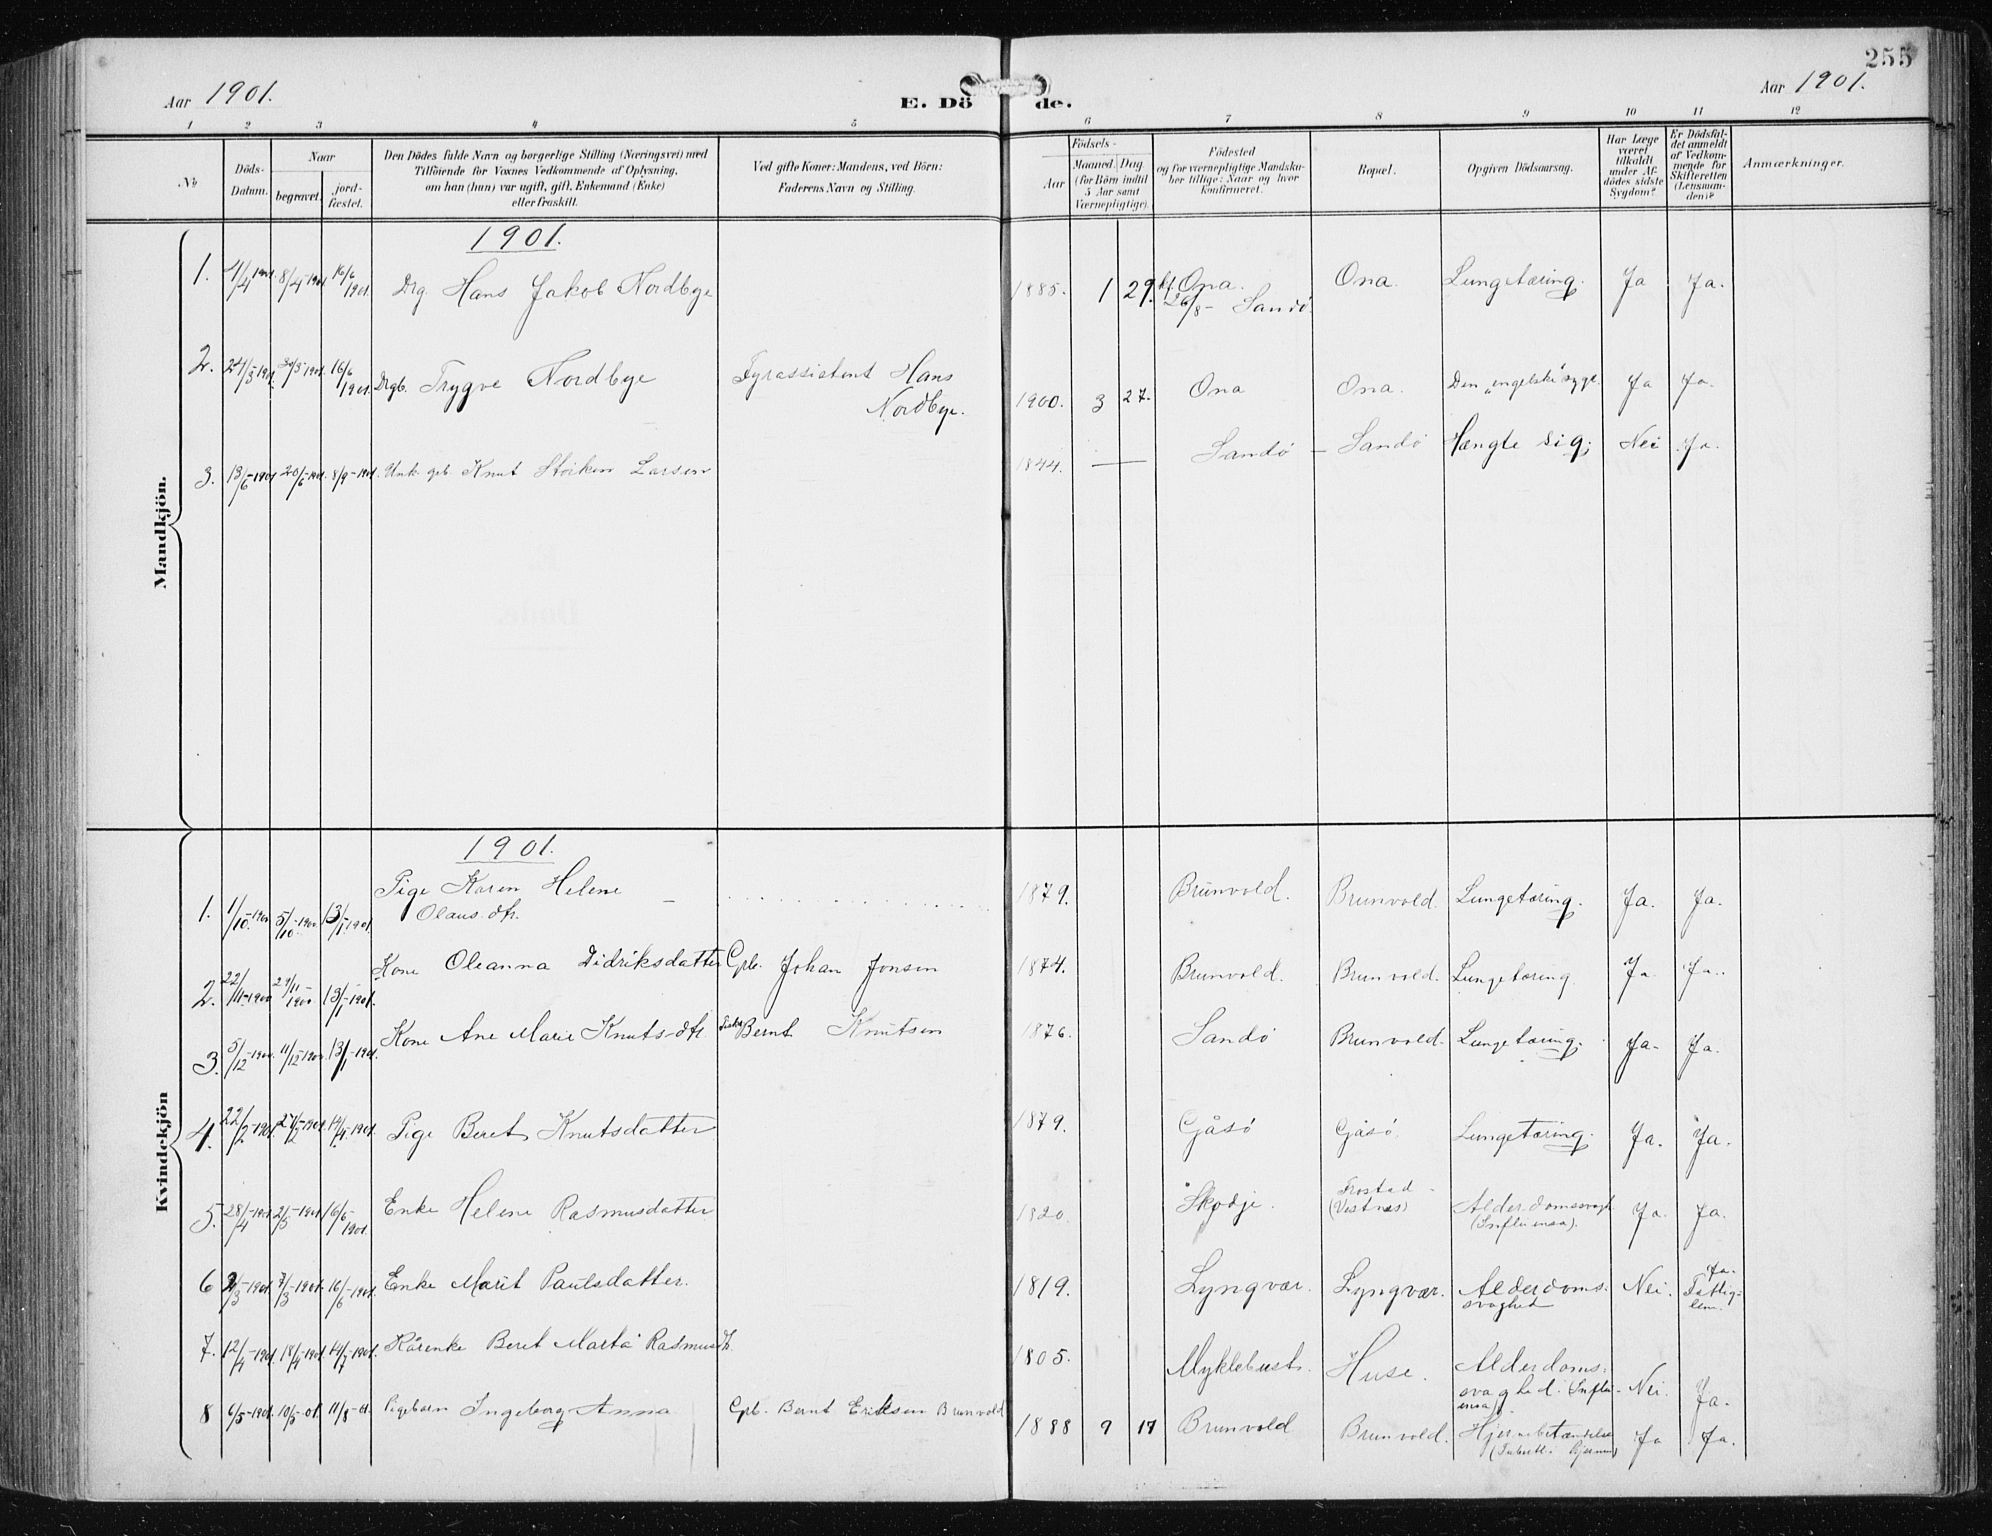 255
Aar 1901.
E. Döde.
Aar 1901.
1 2 3 4 5 6 7 8 9 10 11 12
No
Döds-Datum.
Naar
begravet.
jord-fæstet.
Den Dödes fulde Navn og borgerlige Stilling (Næringsvei) med
Tilföiende for Voxnes Vedkommende af Oplysning,
om han (hun) var ugift, gift, Enkemand (Enke)
eller fraskilt.
Ved gifte Koner: Mandens, ved Börn:
Faderens Navn og Stilling.
Födsels-
Aar
Maaned Dag
(for Börn indtil
5 Aar samt
Værnepligtige).
Födested
og for værnepligtige Mandska-
ber tillige: Naar og hvor
Konfirmeret.
Bopæl.
Opgiven Dödsaarsag.
Har Læge
været
tilkaldt
under Af-
dödes sidste
Sygdom?
Er Dödsfal-
det anmeldt
af Vedkom-
mende for
Skifteretten
(Lensman-
den)?
Anmærkninger.
Mandkjön.
1901.
1. 4/4 1901. 8/4 1901 16/6 1901. Drg. Hans Jakob Nordbye 1885. 1 29. Ona. kf. 26/8 - Sandö. Ona. Lungetæring. Ja Ja.
2. 24/5-1901. 30/5-1901. 16/6 1901. Drgb. Trygve Nordbye Fyrassistent Hans Nordbye. 1900. 3 27. Ona Ona. Den "engelske" syge. Ja Ja.
3. 13/6-1901 20/6-1901. 8/9-1901. Unk. gb. Knut Larsen 1844. — Sandö - Sandö Hængte sig. Nei Ja.
Kvindekjön
1901.
1. 1/10-1900. 5/10-1900. 13/1-1901. Pige Karen Helene Olaus-dtr. 1879. Brunvold. Brunvold. Lungetæring. Ja. Ja.
2. 22/11-1900 29/11-1900 13/1-1901. Kone Oleanna Didriksdatter Grb. Johan Jonsen 1874. Brunvold. Brunvold. Lungetæring Ja Ja.
3. 5/12-1900. 11/12-1900. 13/1-1901. Kone Ane Marie Knuts-dtr. Bernt Knutsen 1876. Sandö Brunvold. Lungetæring. Ja. Ja.
4. 22/2-1901. 27/2-1901. 14/4-1901. Pige Beret Knutsdatter 1879. Gåsö Gåsö. Lungetæring. Ja. Ja.
5. 28/4-1901. 2/5-1901. 16/6-1901. Enke Helene Rasmusdatter 1820. Skodje. Frostad (Vestnæs) Alderdomssvagh. (Influensa). Ja. Ja.
6 /3-1901. 7/3-1901. 16/6-1901. Enke Marit Paulsdatter. 1819. Lyngvær. Lyngvær. Alderdoms-svaghed Nei. Ja. Fattig-lem.
7. 12/4-1901. 18/4-1901. 14/7-1901. Kårenke Beret Marta Rasmusd. 1805. Myklebust. Huse. Alderdoms-svaghed. (Influ-ensa). Nei. Ja.
8 6/5-1901. 10/5-01. 11/8-01. Pigebarn Ingeborg Anna Grb. Bernt Eriksen Brunvold 1888 9 17 Brunvold Brunvold. Hjernebetændelse Ja Ja.